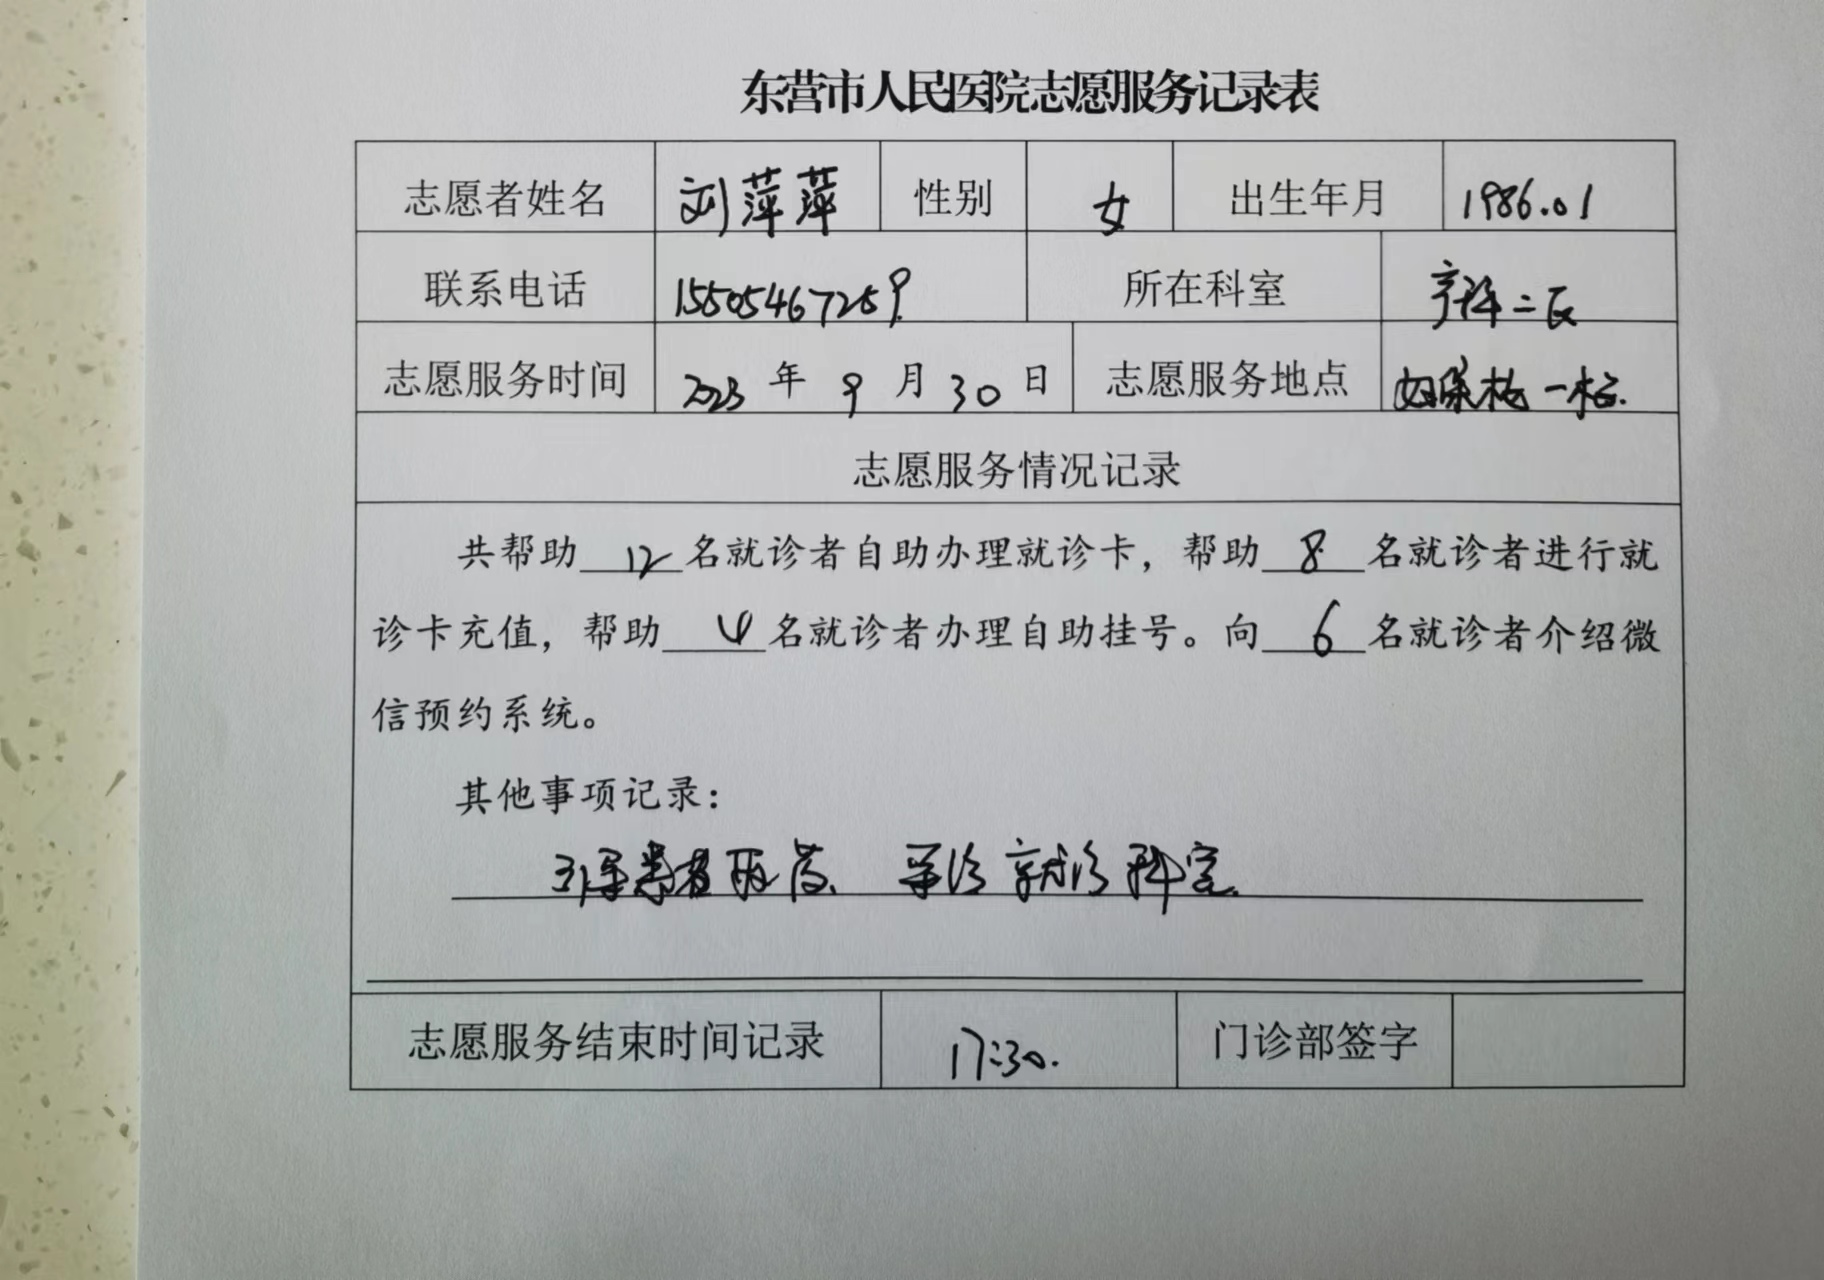 东营市人民医院志愿服务记录表
志愿者姓名 刘萍萍 性别 女 出生年月 1986.01
联系电话 15505467259 所在科室 产科二区
志愿服务时间 2023 年 9 月 30 日 志愿服务地点 妇保楼一楼.
志愿服务情况记录
共帮助 12 名就诊者自助办理就诊卡，帮助 8 名就诊者进行就
诊卡充值，帮助 4 名就诊者办理自助挂号。向 6 名就诊者介绍微
信预约系统。
其他事项记录：
引导患者取药、导诊就诊科室.
志愿服务结束时间记录 17:30. 门诊部签字